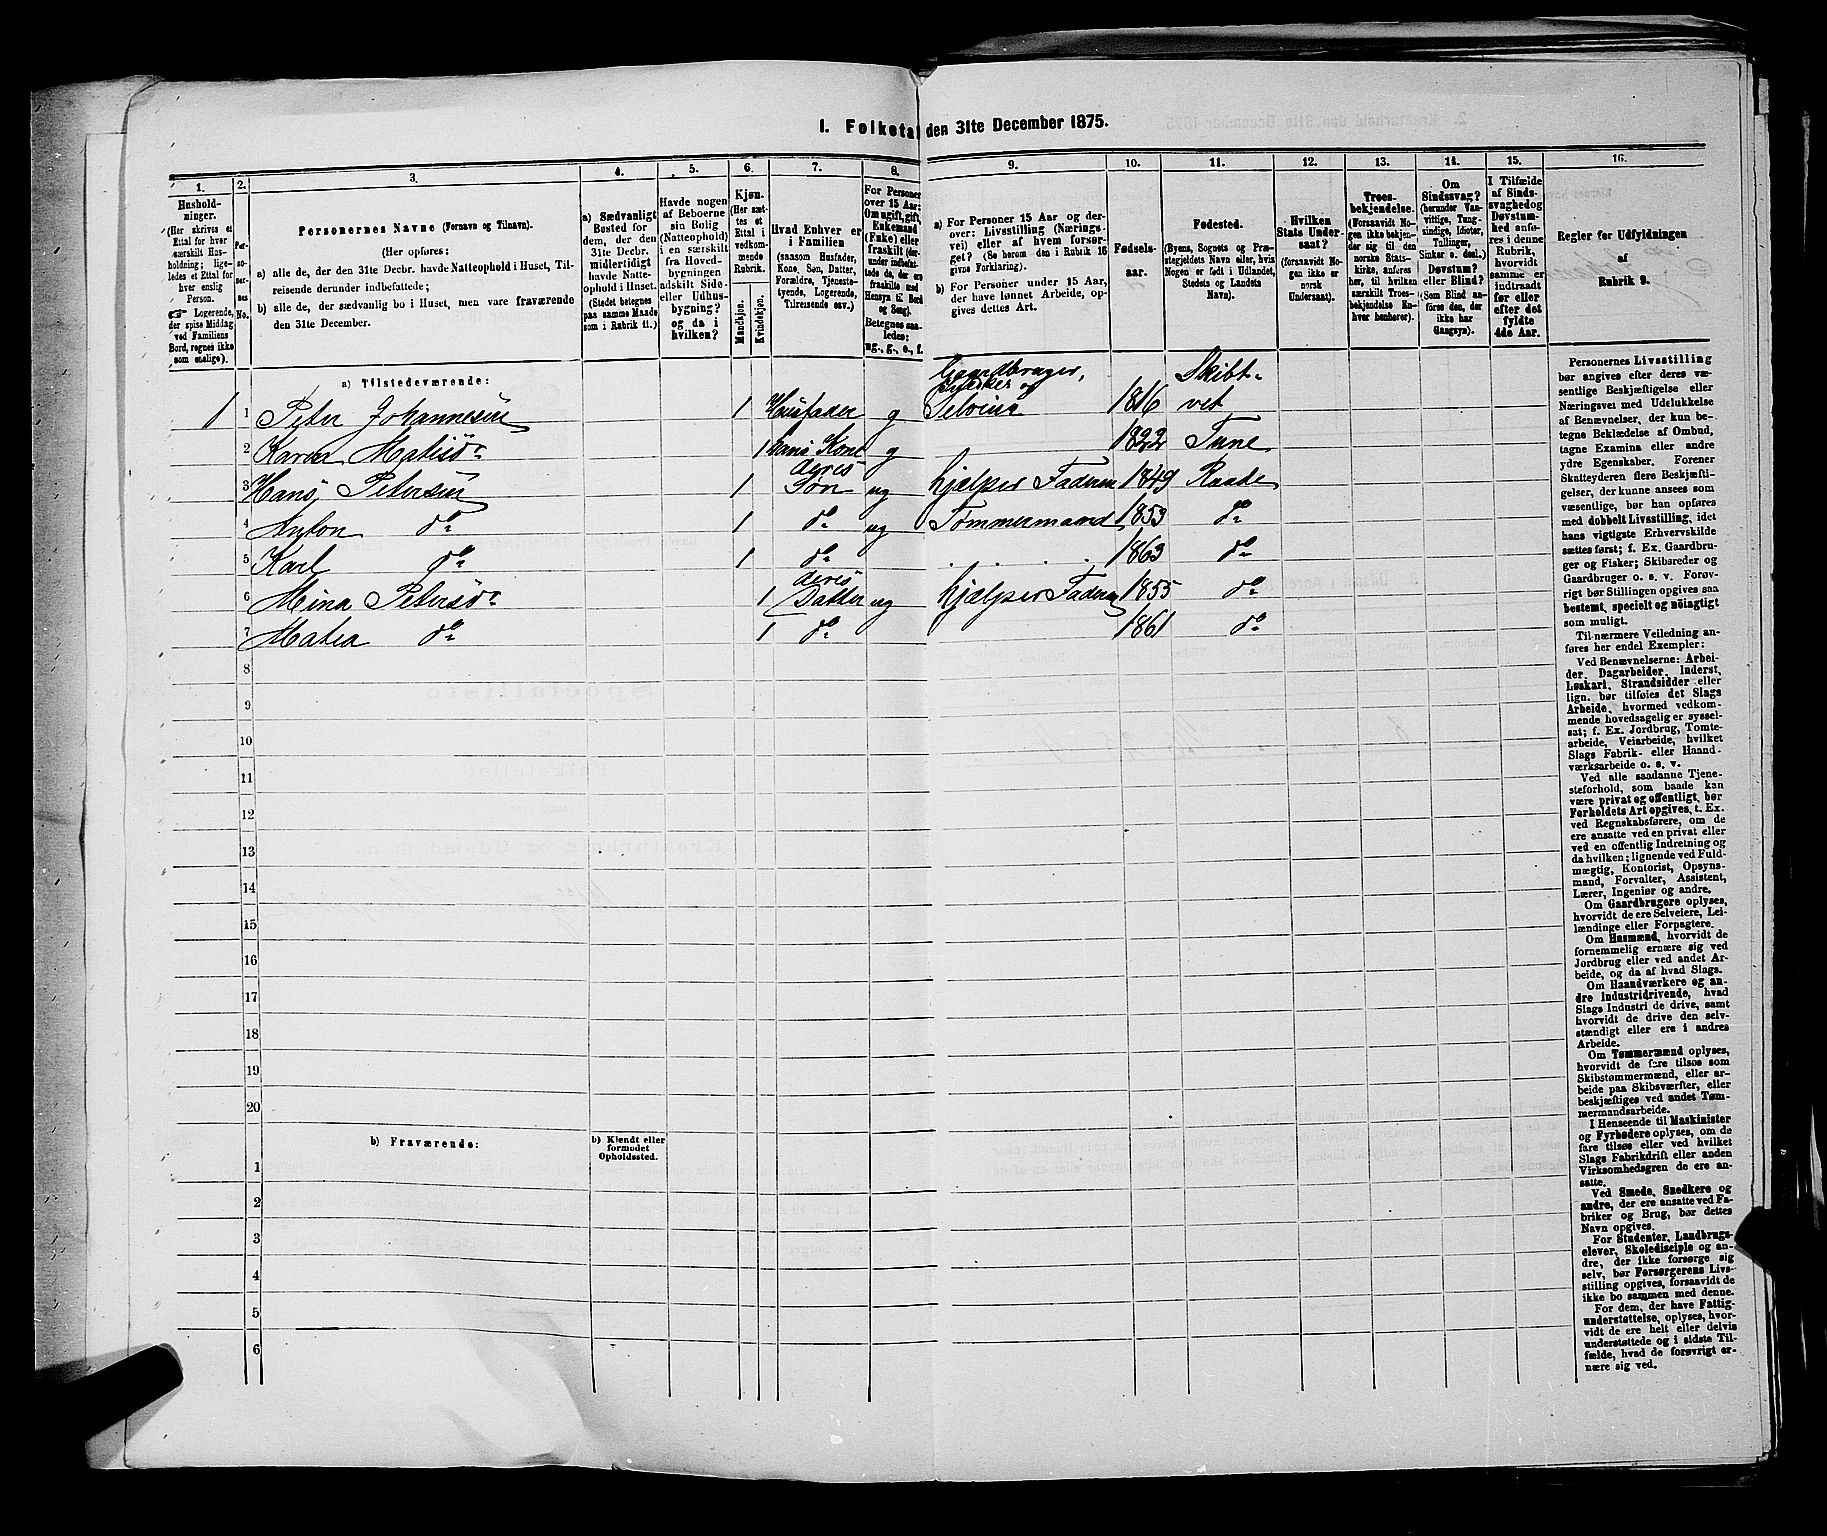 1. Folketal den 31te December 1875.
1. 2. 3. 4. 5. 6. 7. 8. 9. 10. 11. 12. 13. 14. 15. 16.
Husholdninger.
(Her skrives et Ettal for hver særskilt Husholdning; ligeledes et Ettal for hver enslig Person.
Logerende, der spise Middag ved Familiens Bord, regnes ikke som enslige).
Personernes No.
Personernes Navne (Fornavn og Tilnavn).
(Her opføres:
a) alle de, der den 31te Decbr. havde Natteophold i Huset, Tilreisende derunder indbefattede;
b) alle de, der sædvanlig bo i Huset, men vare fraværende den 31te December.
a) Sædvanligt Bosted for dem, der den 31te Decbr. midlertidigt havde Natteophold i Huset. (Stedet betegnes paa samme Maade som i Rubrik 11.)
Havde nogen af Beboerne sin Bolig (Natteophold) i en særskilt fra Hovedbygningen adskilt Side- eller Udhusbygning? og da i hvilken?
Kjøn.
(Her sættes et Ettal i vedkommende Rubrik.
Mandkjøn.
Kvindekjøn.
Hvad Enhver er i Familien
(saasom Husfader, Kone, Søn, Datter, Forældre, Tjenestetyende, Logerende, Tilreisende osv.)
For Personer over 15 Aar: Om ugift, gift, Enkemand (Enke) eller fraskilt (derunder indbefattede de, der ere fraskilte med Hensyn til Bord og Seng).
Betegnes saaledes: ug., g., e., f.
a) For Personer 15 Aar og derover: Livsstilling (Næringsvei) eller af hvem forsørget? (Se herom den i Rubrik 16 givne Forklaring).
b) For Personer under 15 Aar, der have lønnet Arbeide, opgives dettes Art.
Fødselsaar.
Fødested.
(Byens, Sognets og Præstegjeldets Navn eller, hvis Nogen er født i Udlandet, Stedets og Landets Navn).
Hvilken Stats Undersaat?
(forsaavidt Nogen ikke er norsk Undersaat).
Troesbekjendelse.
(Forsaavidt Nogen ikke bekjender sig til den norske Statskirke, anføres her, til hvilken særskilt Troesbekjendelse Enhver henhører).
Om Sindssvag? (herunder Vanvittige, Tungsindige, Idioter, Tullinger, Sinker o. desl.) Døvstum? eller Blind? (Som Blind anføres den, der ikke har Gangsyn).
I Tilfælde af Sindssvaghed og Døvstumhed anføres i denne Rubrik, hvorvidt samme er indtraadt før eller efter det fyldte 4de Aar.
Regler for Udfyldningen
af
Rubrik 9.
a) Tilstedeværende:
1 1 Peter Johannesen 1 Husfader g Gaardbruger, Snedker og Selveier 1816 Skibtvet
2 Karen Matisdr 1 hans Kone g 1822 Tune
3 Hans Petersen 1 deres Søn ug hjælper Faderen 1849 Raade
4 Anton do 1 do ug Tømmermand 1853 do
5 Karl do 1 do . . . . 1863 do
6 Mina Petersdr 1 deres Datter ug hjælper Faderen 1855 do
7 Matea do 1 do 1861 do
8
9
10
11
12
13
14
15
16
17
18
19
20
b) Fraværende:
b) Kjendt eller formodet Opholdssted.
1
2
3
4
5
6
Personernes Livsstilling
bør angives efter deres væsentlige Beskjæftigelse eller
Næringsvei med Udelukkelse
af Benævnelser, der kun betegne Beklædelse af Ombud,
tagne Examina eller andre
ydre Egenskaber. Forener
Skatteyderen flere Beskjæftigelser, der kunne ansees som
væsentlige, bør han opføres
med dobbelt Livsstilling, idet
hans vigtigste Erhvervskilde
sættes først; f. Ex. Gaardbruger og Fisker; Skibsreder og
Gaardbruger o. s. v. Forøvrigt bør Stillingen opgives saa
bestemt, specielt og nøiagtigt
som muligt.
Til nærmere Veiledning anføres her endel Exempler:
Ved Benævnelserne: Arbeider, Dagarbeider, Inderst,
Løskarl, Strandsidder eller
lign. bør tilføies det Slags
Arbeide, hvormed vedkommende hovedsagelig er sysselsat; f. Ex. Jordbrug, Tomtearbeide, Veiarbeide, hvilket
Slags Fabrik- eller Haandværksarbeide o. s. v.
Ved alle saadanne Tjenesteforhold, som baade kan
være privat og offentligt, bør
Forholdets Art opgives, t. Ex.
ved Regnskabsførere, om de
ere ansatte ved en privat eller
ved en offentlig Indretning og
da hvilken; lignende ved Fuldmægtig, Kontorist, Opsynsmand, Forvalter, Assistent,
Lærer, Ingeniør og andre.
Om Gaardbrugere oplyses,
hvorvidt de ere Selveiere, Leilændinge eller Forpagtere.
Om Husmænd, hvorvidt de
fornemmelig ernære sig ved
Jordbrug eller ved andet Arbeide, og da af hvad Slags.
Om Haandværkere og andre Industridrivende, hvad
Slags Industri de drive, samt
hvorvidt de drive den selvstændigt eller ere i andres
Arbeide.
Om Tømmermænd oplyses,
hvorvidt de fare tilsøs som
Skibstømmermænd, eller arbeide paa Skibsværfter, eller
beskjæftiges ved andet Tømmermandsarbeide.
I Henseende til Maskinister
og Fyrbødere oplyses, om de
fare tilsøs eller ved hvilket
Slags Fabrikdrift eller anden
Virksomhedsgren de ere ansatte.
Ved Smede, Snedkere og
andre, der ere ansatte ved Fabriker og Brug, bør dettes
Navn opgives.
For Studenter, Landbrugselever, Skoledisciple og andre, der ikke forsørge sig
selv, bør Forsørgerens Livsstilling opgives, forsaavidt de
ikke bo sammen med denne.
For dem, der have Fattigunderstøttelse, oplyses, hvorvidt de ere helt eller delvis
understøttede og i sidste Tilfælde, hvad de forøvrigt ernære sig ved.